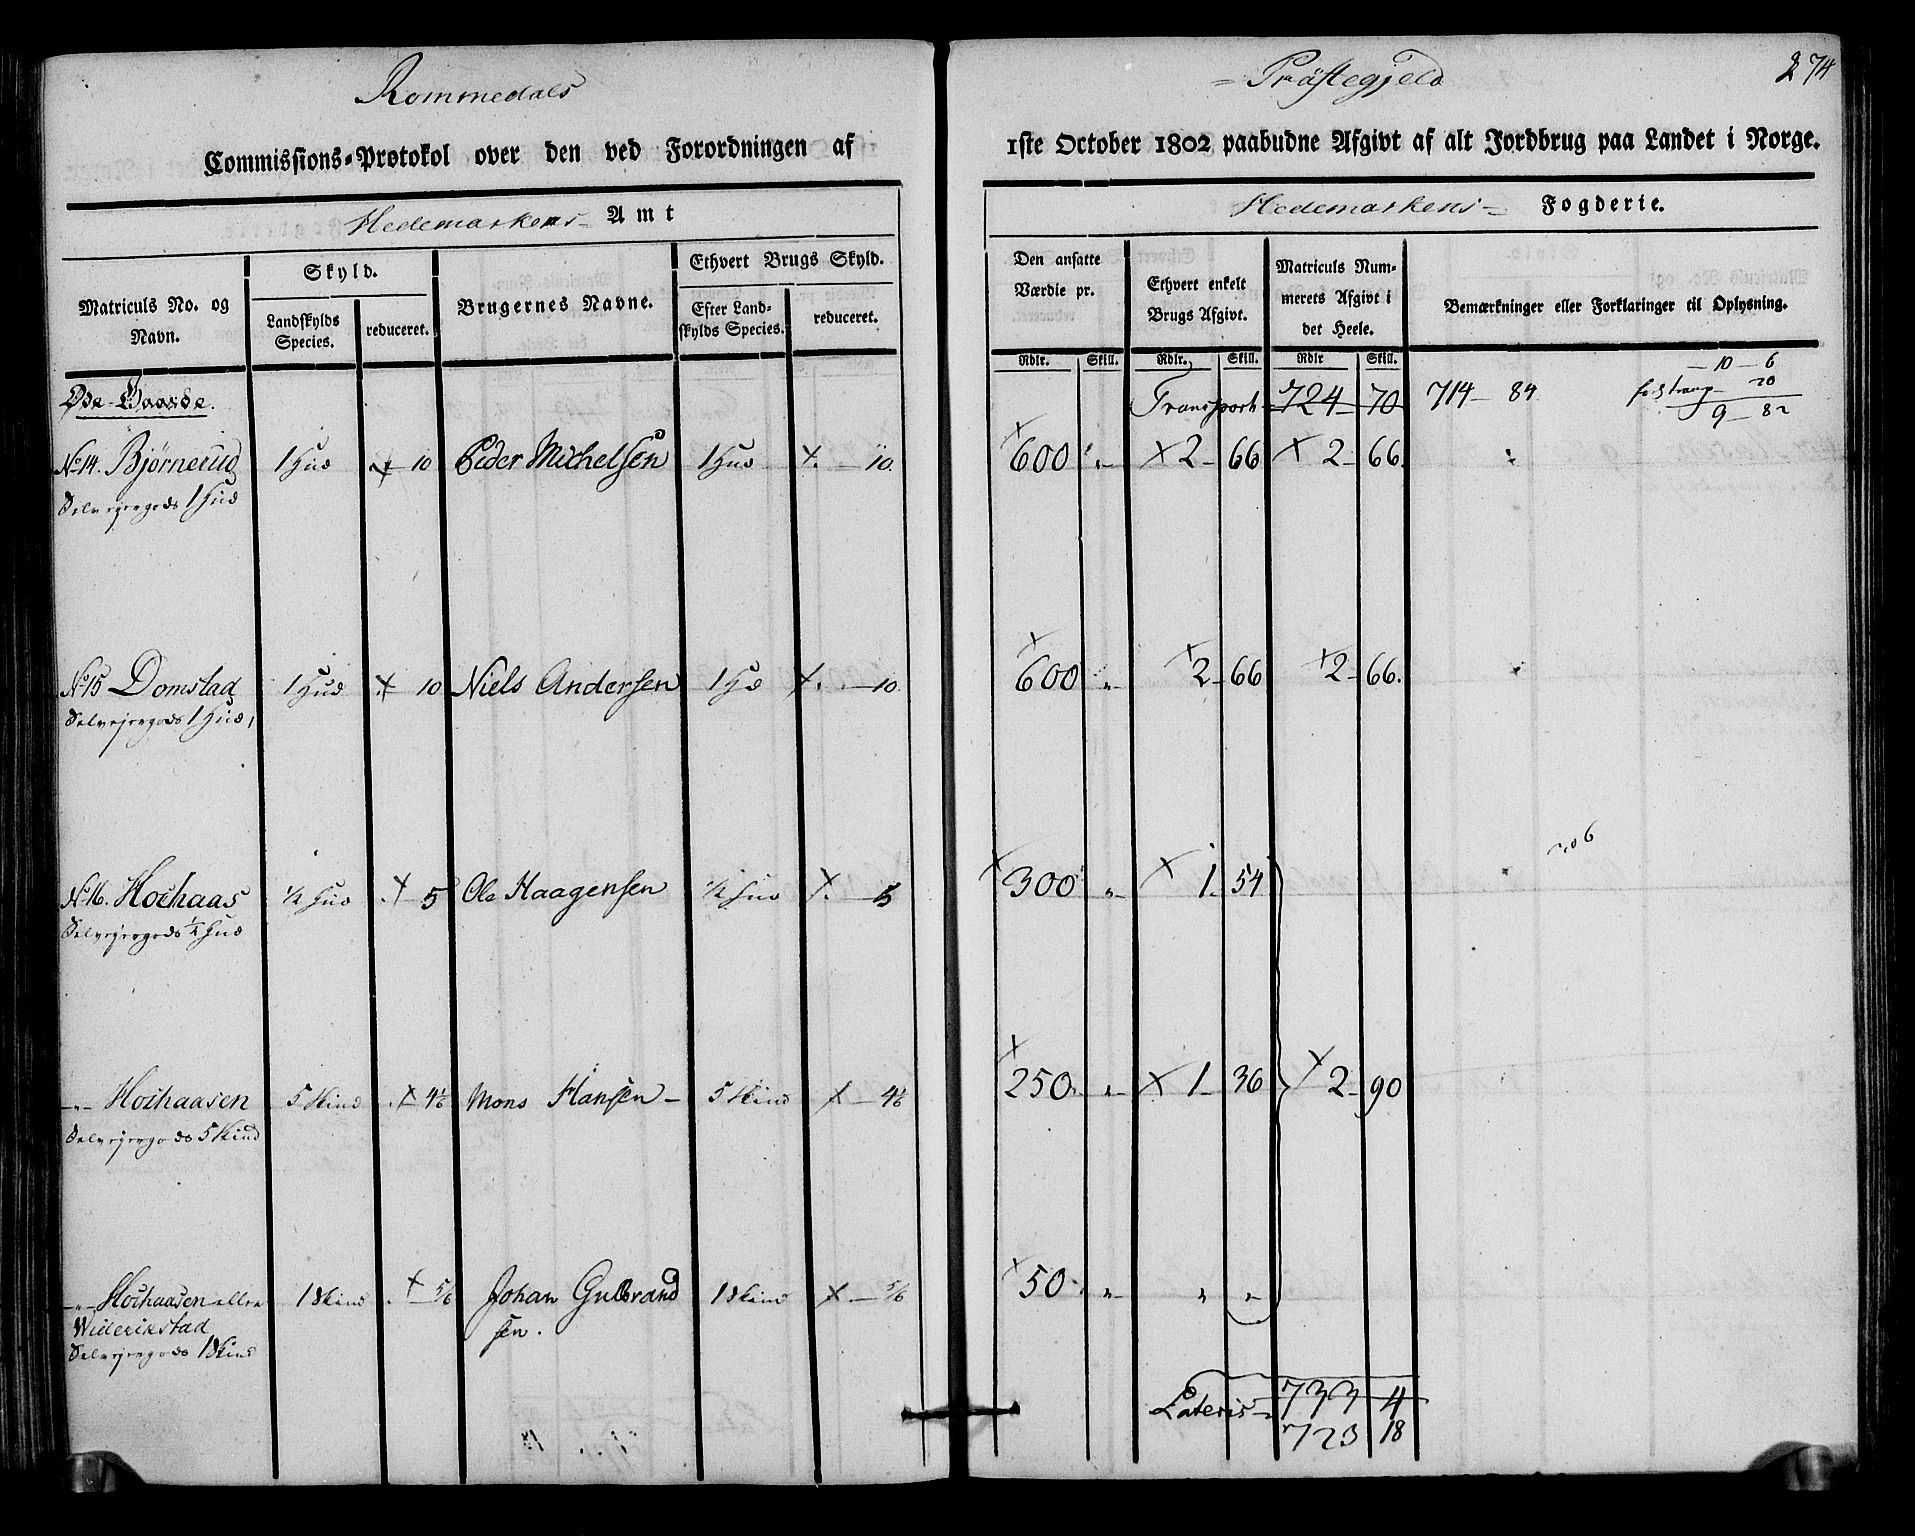 Rommedals
= Præstegjeld
274
Commissions-Protokol over den ved Forordningen af 1ste October 1802 paabudne Afgivt af alt Jordbrug paa Landet i Norge.
Hedemarkens Amt
Hedemarkens Fogderie.
Matriculs No. og Navn.
Skyld.
Landskylds Species.
reduceret.
Brugernes Navne.
Ethvert Brugs Skyld.
Efter Landskylds Species.
reduceret.
Den ansatte Værdie pr.
Ethvert enkelt Brugs Afgivt.
Matriculs Nummerets Afgivt i det Heele.
Bemærkninger eller Forklaringer til Oplysning.
Rdlr. Skill. Rdlr. Skill. Rdlr Skill.
Øde-Gaarde.
Transport 724 - 70 714 - 84
- 10 - 6
20
9 - 82
No 14. Bjørnerud 1 Hud x 10 Peder Michelsen 1 Hud x. - 10. x 600 „ x 2 - 66 x 2 - 66.
Selvejergods 1 Hud
No 15 Domstad 1 Hud x 10 Niels Andersen 1 Hd x. - 10. x 600 „ x 2 - 66 x 2 - 66.
Selvejergods 1 Hud,
No 16. Hoehaas ½ Hud x 5 Ole Haagensen ½ Hud x. - 5 x 300 „ x 1. 54
Selvejergods ½ Hud
206
-„- Hoehaasen 5 Skind x 4 1/6 Mons Hansen - 5 Skind x - 4 1/6 x 250. „ x 1 - 36 x 2 - 90
Selvejergods 5 Skind
-„- Hoehaasen eller 1 Skind x - 5/6 Johan Gulbrand 1 Skind x - 5/6 x 50. „ „ „
Widerikstad sen.
Selvejergods 1 Skind
Lateris = 733 4
723 18